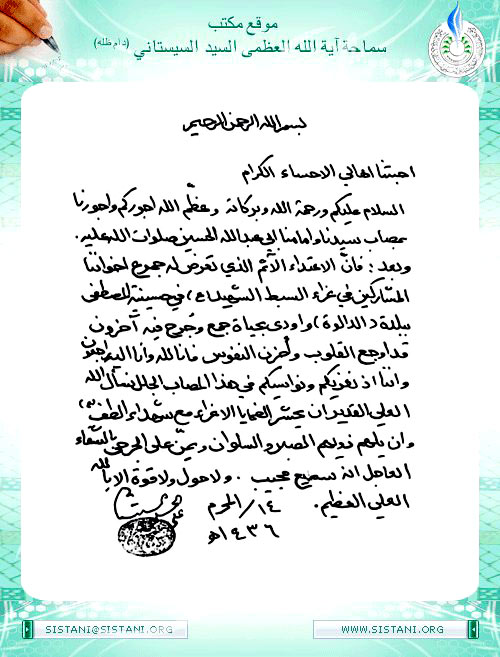 موقع مكتب
سماحة آية الله العظمى السيد السيستاني (دام ظله)
بسم الله الرحمن الرحيم
احبتنا اهالي الاحساء الكرام
السلام عليكم ورحمة الله وبركاته وعظّم الله اجوركم واجورنا
بمصاب سيدنا وامامنا ابي عبدالله الحسين صلوات الله عليه.
وبعد: فانّ الاعتداء الآثم الذي تعرض له جموع اخواننا
المشاركين في عزاء السبط الشهيد(ع) في حسينية المصطفى
ببلدة (الدالوة) واودى بحياة جمع وجُرح فيه آخرون
قد اوجع القلوب وأحزن النفوس فانا لله وانا اليه راجعون
واننا اذ نعزيكم ونواسيكم في هذا المصاب الجلل نسأل الله
العلي القدير ان يحشر الضحايا الاعزاء مع شهداء الطف
وان يلهم ذويهم الصبر والسلوان ويمنّ على الجرحى بالشفاء
العاجل انه سميع مجيب. ولا حول ولا قوة الا بالله
العلي العظيم.
١٤/المحرم
١٤٣٦هـ
SISTANI@SISTANI.ORG
WWW.SISTANI.ORG